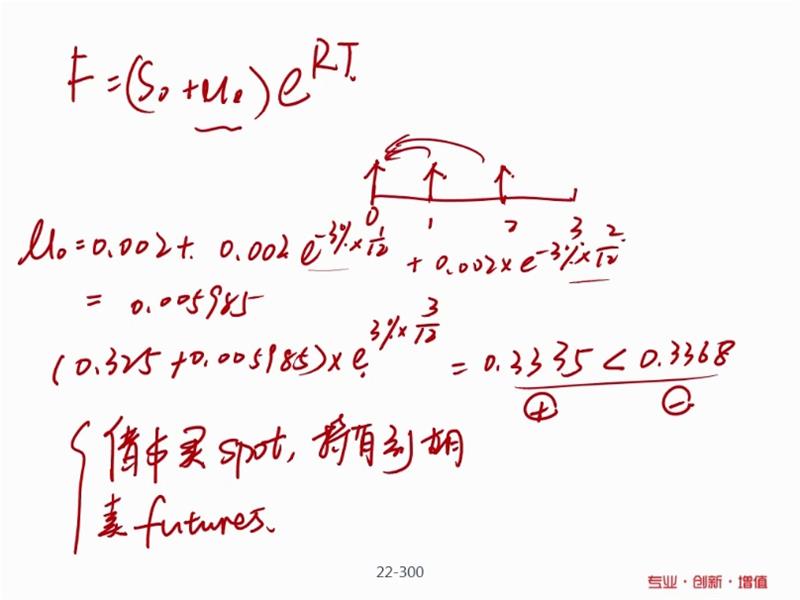 F=(S₀+u₀)e^{RT}
0 1 2 3
u₀=0.002+ 0.002e^{-3%×1/12} +0.002×e^{-3%×2/12}
= 0.005985
(0.325+0.005985)×e^{3%×3/12} = 0.3335<0.3368
+ −
借本买spot,持有到期
卖futures.
22-300
专业·创新·增值